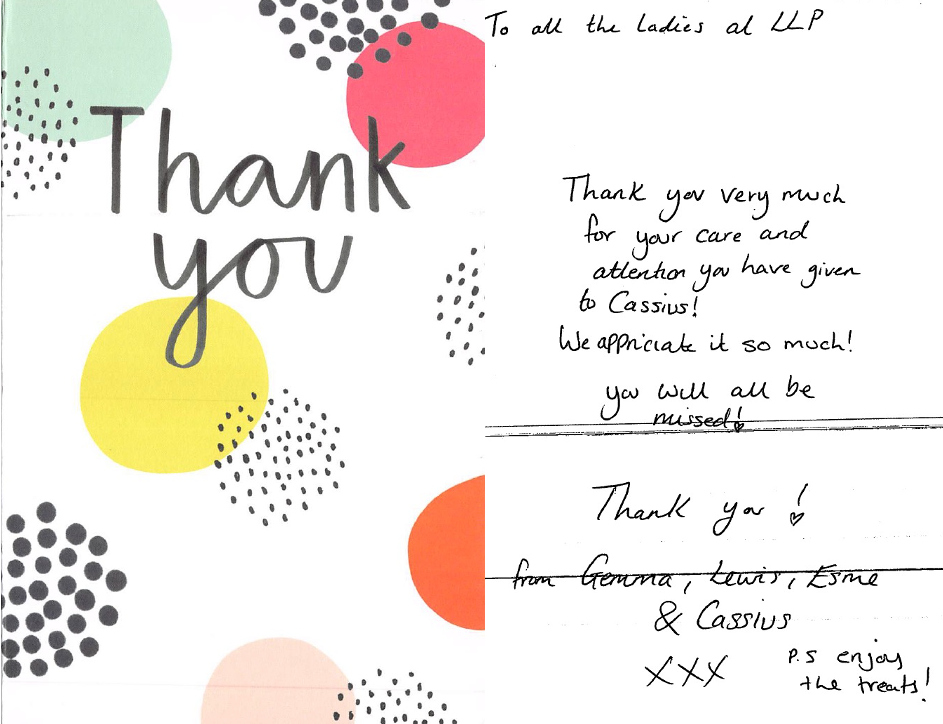 Thank
you
To all the Ladies at LLP
Thank you very much
for your care and
attention you have given
to Cassius!
We appriciate it so much!
you will all be
missed!
Thank you!
from Gemma, Lewis, Esme
& Cassius
XXX
P.S enjoy
the treats!